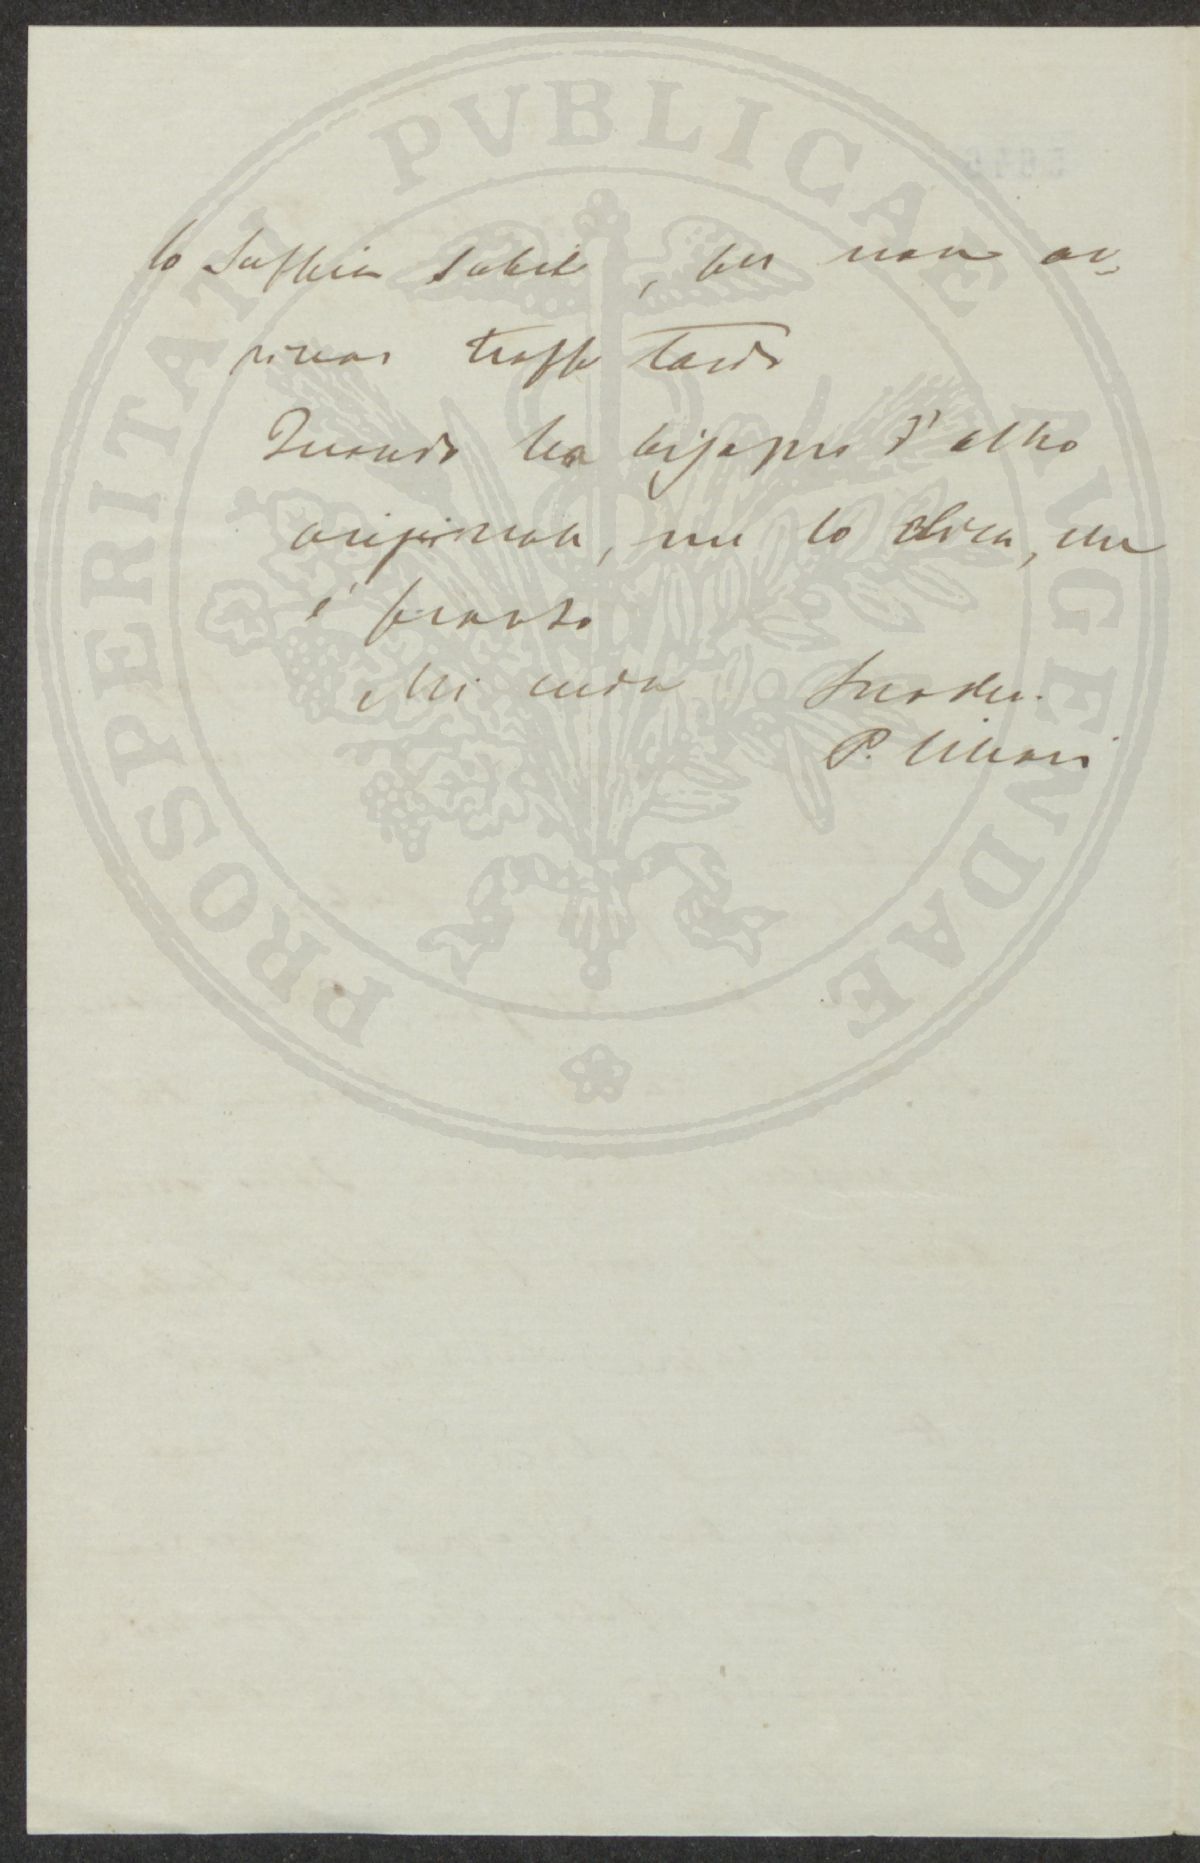 lo sappia subito, per non ar-
rivar troppo tardi
Quando ha bisogno d'altro
originale, me lo dica, che
è pronto
Mi creda Suo dev.
P. Villari
PROSPERITATI PVBLICAE AVGENDAE